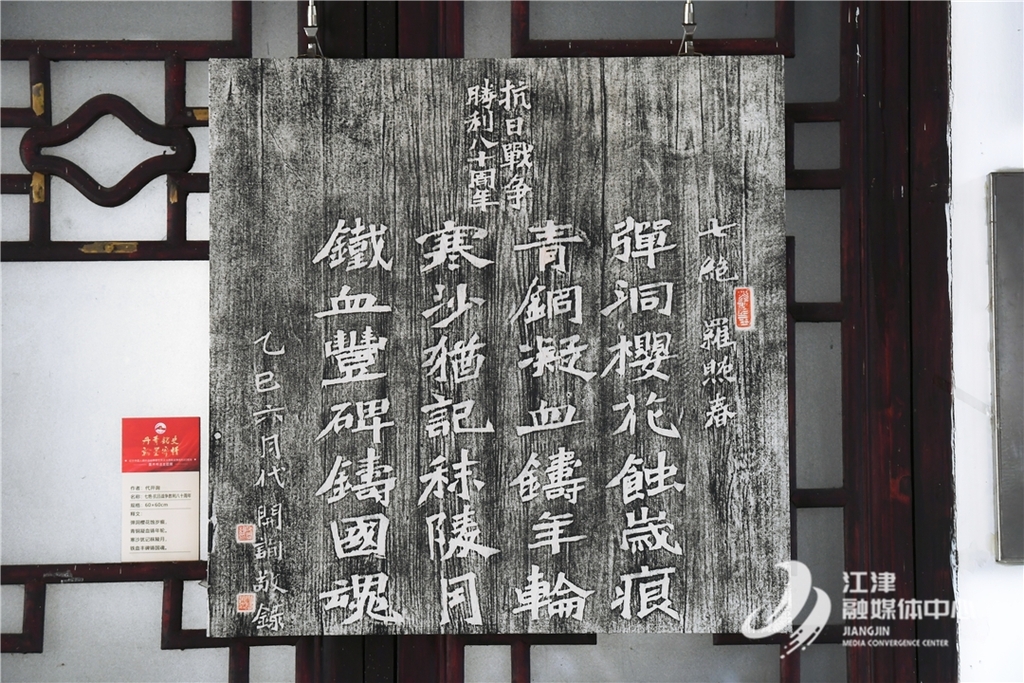 抗日戰争
勝利八十周年
七絶 羅照春
彈洞櫻花蝕歲痕
青銅凝血鑄年輪
寒沙猶記秣陵月
鐵血豐碑鑄國魂
乙巳六月代開詢敬錄
丹青铭史
翰墨传情
规格：60×60cm
释文：
江津
融媒体中心
JIANGJIN
MEDIA CONVERGENCE CENTER